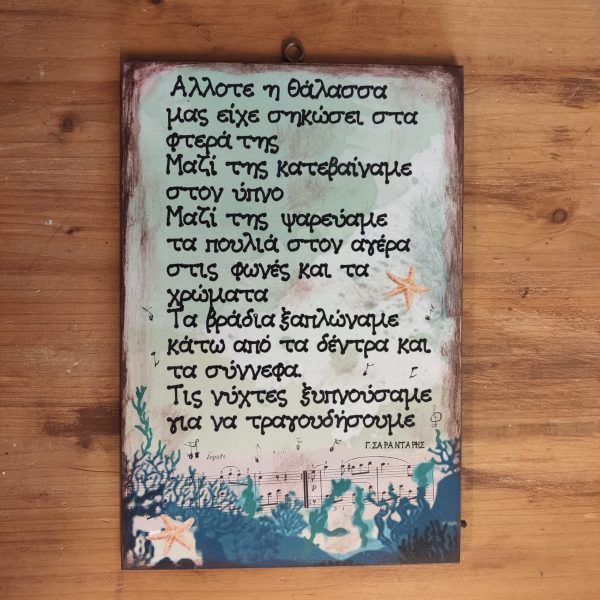 Αλλοτε η θάλασσα
μας είχε σηκώσει στα
φτερά της
Μαζί της κατεβαίναμε
στον ύπνο
Μαζί της ψαρεύαμε
τα πουλιά στον αγέρα
στις φωνές και τα
χρώματα
Τα βράδια ξαπλώναμε
κάτω από τα δέντρα και
τα σύννεφα.
Τις νύχτες ξυπνούσαμε
για να τραγουδήσουμε
Γ. ΣΑΡΑΝΤΑΡΗΣ